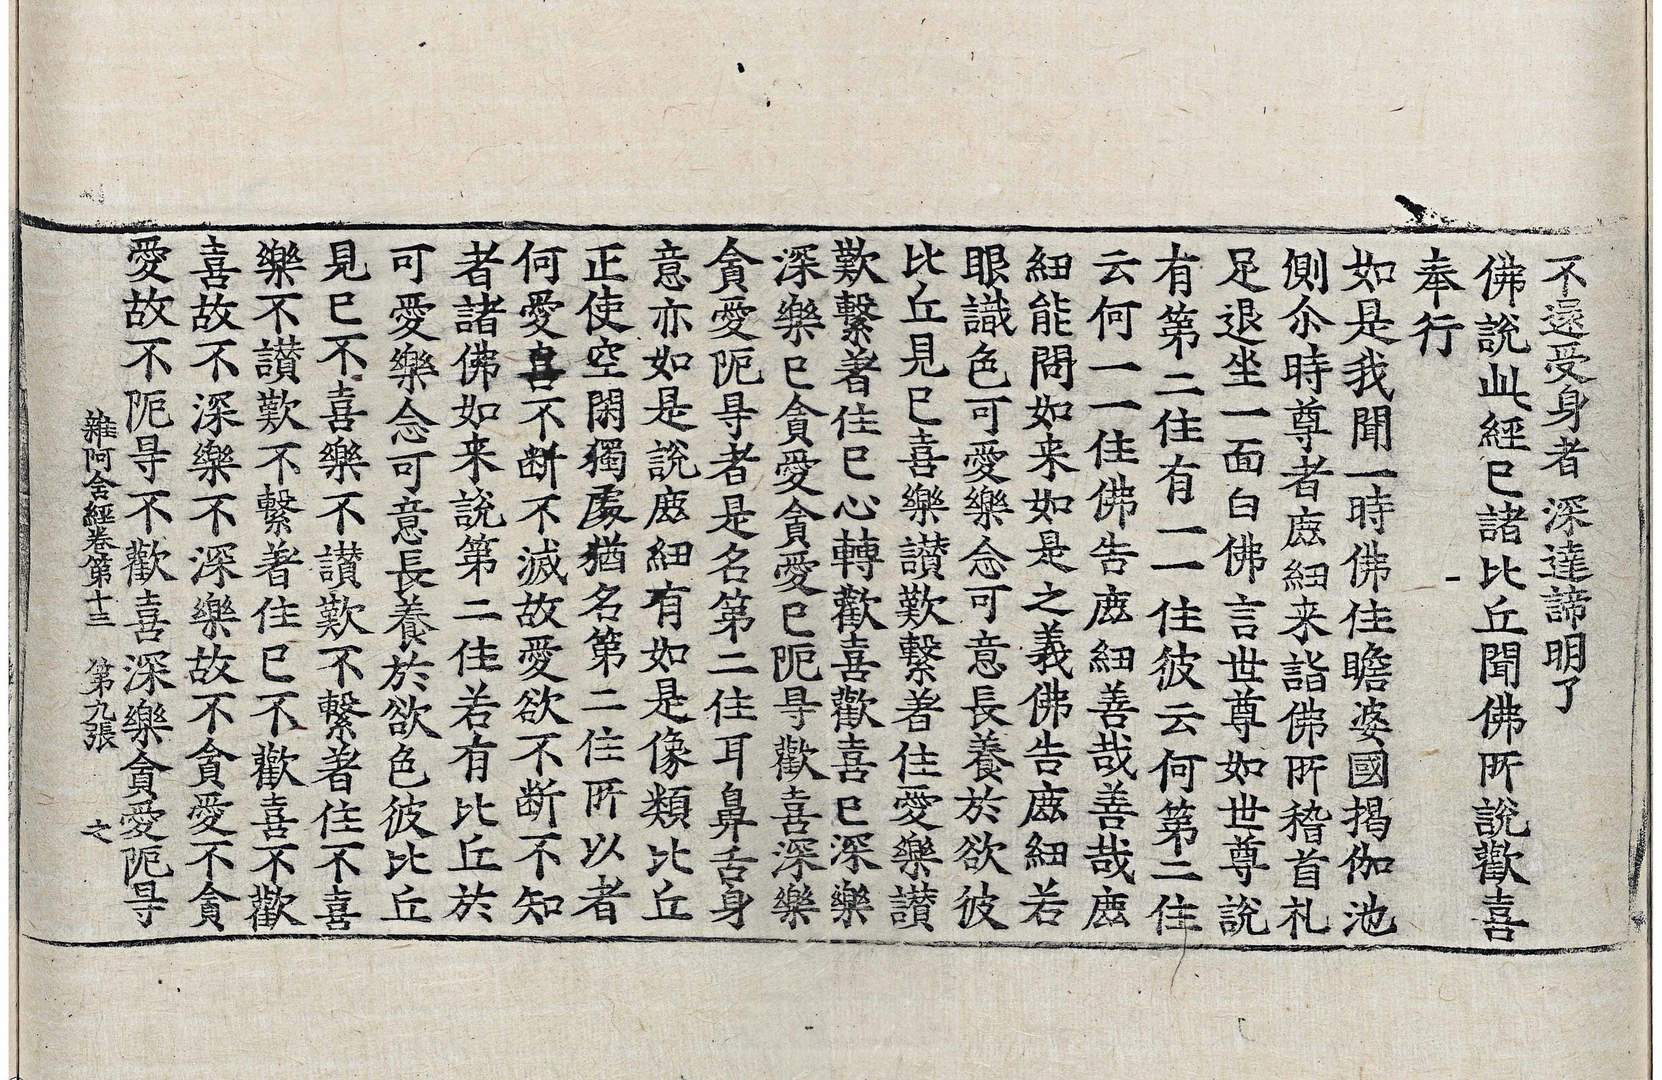 不還受身者 深達諦明了
佛說此經已諸比丘聞佛所說歡喜
奉行
如是我聞一時佛住瞻婆國揭伽池
側尒時尊者鹿紐来詣佛所稽首礼
足退坐一面白佛言世尊如世尊說
有第二住有一一住彼云何第二住
云何一一住佛告鹿紐善哉善哉鹿
紐能問如来如是之義佛告鹿紐若
眼識色可愛樂念可意長養於欲彼
比丘見已喜樂讃歎繫著住愛樂讃
歎繫著住已心轉歡喜歡喜已深樂
深樂已貪愛貪愛已阨㝵歡喜深樂
貪愛阨㝵者是名第二住耳鼻舌身
意亦如是說鹿紐有如是像類比丘
正使空閑獨處猶名第二住所以者
何愛喜不断不滅故愛欲不断不知
者諸佛如来說第二住若有比丘於
可愛樂念可意長養於欲色彼比丘
見已不喜樂不讃歎不繫著住不喜
樂不讃歎不繫著住已不歡喜不歡
喜故不深樂不深樂故不貪愛不貪
愛故不阨㝵不歡喜深樂貪愛阨㝵
雜阿含經卷第十三 第九張 文